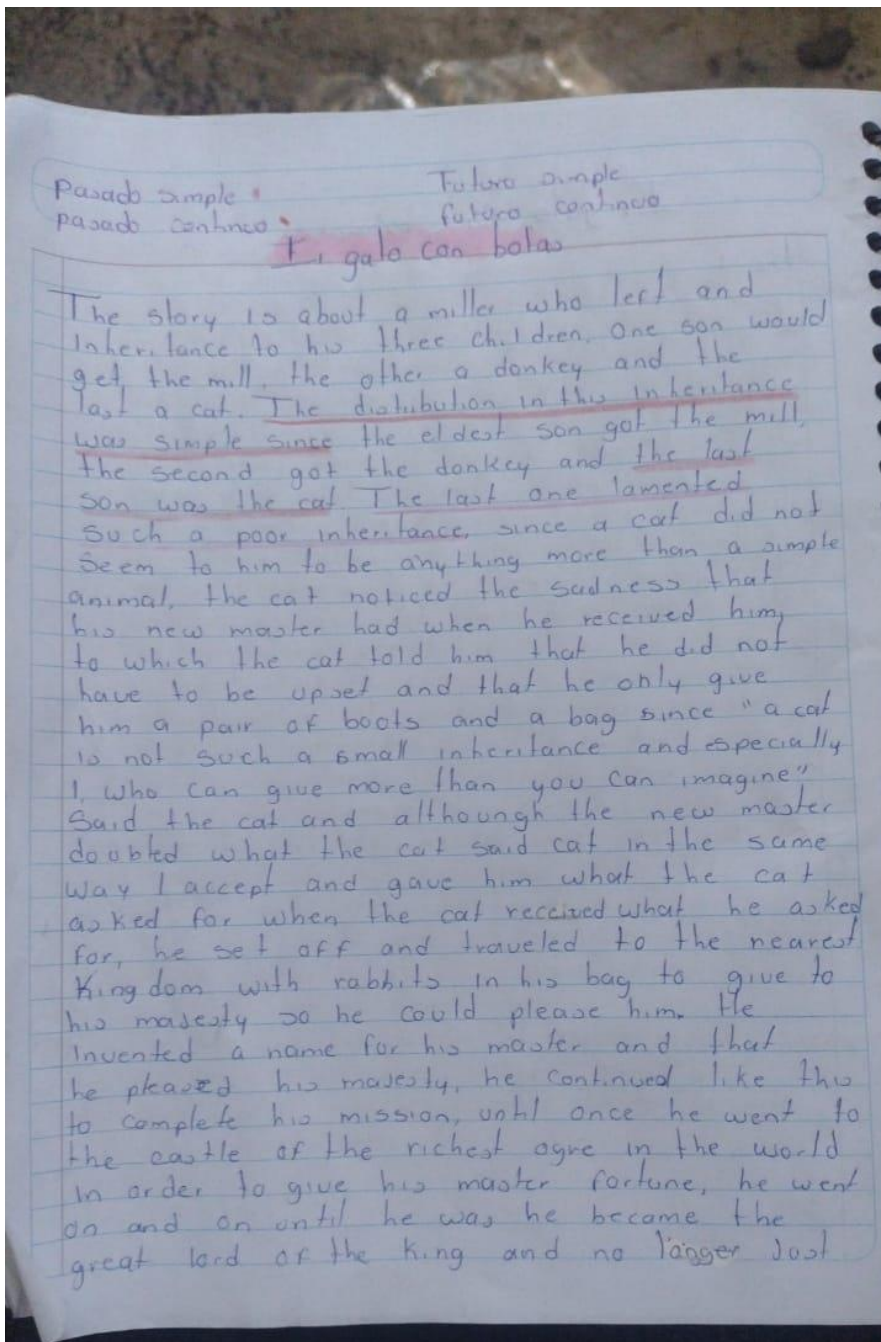 Pasado simple
Futuro simple
pasado continuo
futuro continuo
El gato con botas
The story is about a miller who left and
Inheritance to his three children, One son would
get, the mill, the other a donkey and the
last a cat. The distribution in this inheritance
was simple since the eldest son got the mill,
the second got the donkey and the last
son was the cat. The last one lamented
such a poor inheritance, since a cat did not
seem to him to be anything more than a simple
animal, the cat noticed the sadness that
his new master had when he received him,
to which the cat told him that he did not
have to be upset and that he only give
him a pair of boots and a bag since "a cat
is not such a small inheritance and especially
I, who can give more than you can imagine"
Said the cat and althoungh the new master
doubted what the cat said cat in the same
way I accept and gave him what the cat
asked for when the cat received what he asked
for, he set off and traveled to the nearest
Kingdom with rabbits in his bag to give to
his madesty so he could please him. He
invented a name for his master and that
he pleased his majesty, he continued like this
to complete his mission, until once he went to
the castle of the richest ogre in the world
in order to give his master fortune, he went
on and on until he was he became the
great lord of the King and no longer Just